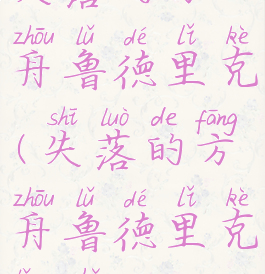 zhōu lǔ dé lǐ kè
舟鲁德里克
shī luò de fāng
(失落的方
zhōu lǔ dé lǐ kè
舟鲁德里克